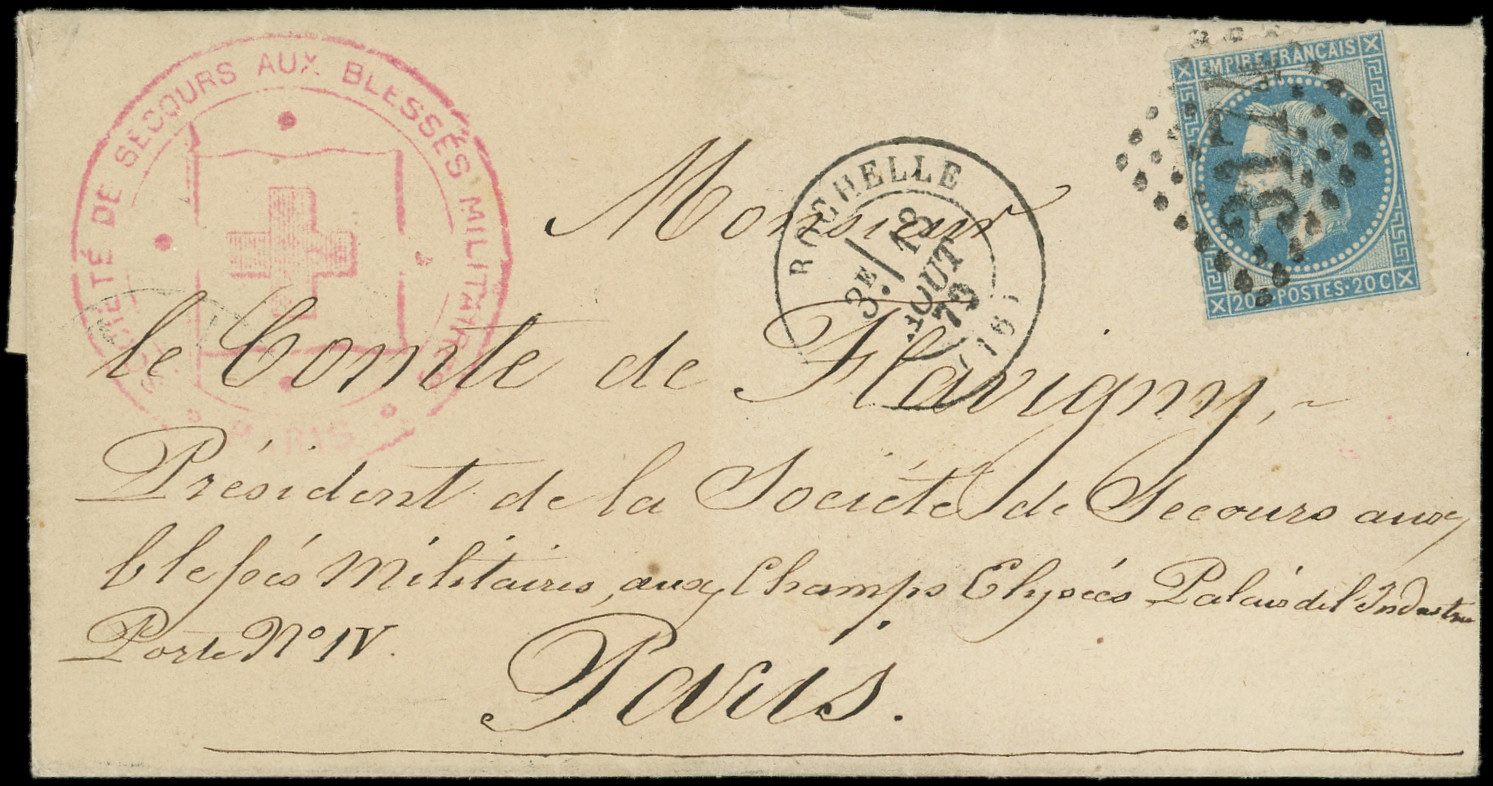 SOCIÉTÉ DE SECOURS AUX BLESSÉS MILITAIRES
PARIS
EMPIRE FRANÇAIS
20C · POSTES · 20C
ROCHELLE
3E
18
AOUT
70
(16)
Monsieur
le Comte de Flavigny,
Président de la Société de Secours aux
blessés Militaires, aux Champs Elysées Palais de l'Industrie
Porte No IV.
Paris.